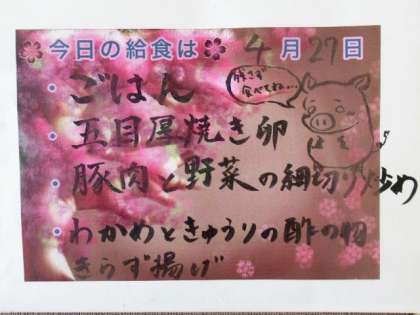 今日の給食は 4月27日
残さず
食べてね…
・ごはん
・五目厚焼き卵
・豚肉と野菜の細切り炒め
・わかめときゅうりの酢の物
きらず揚げ